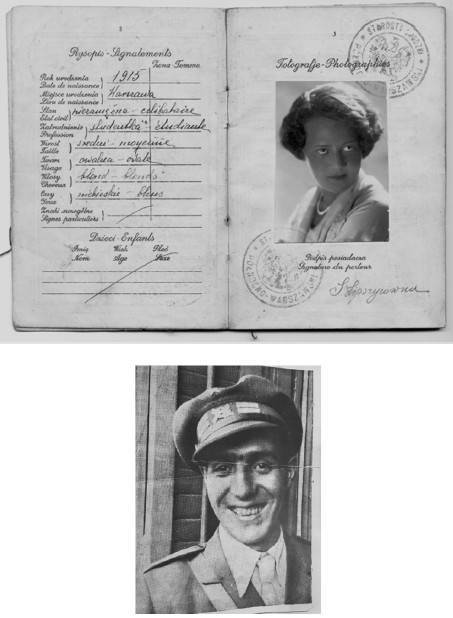 2
Rysopis - Signalements
Żona - Femme
Rok urodzenia
Date de naissance
1915
Miejsce urodzenia
Lieu de naissance
Warszawa
Stan
Etat civil
niezamężna - célibataire
Zatrudnienie
Profession
studentka - étudiante
Wzrost
Taille
średni - moyenne
Twarz
Visage
owalna - ovale
Włosy
Cheveux
blond - blonds
Oczy
Yeux
niebieskie - bleus
Znaki szczególne
Signes particuliers
Dzieci - Enfants
Imię Wiek Płeć
Nom Age Sexe
3
Fotografje - Photographies
Podpis posiadacza
Signature du porteur